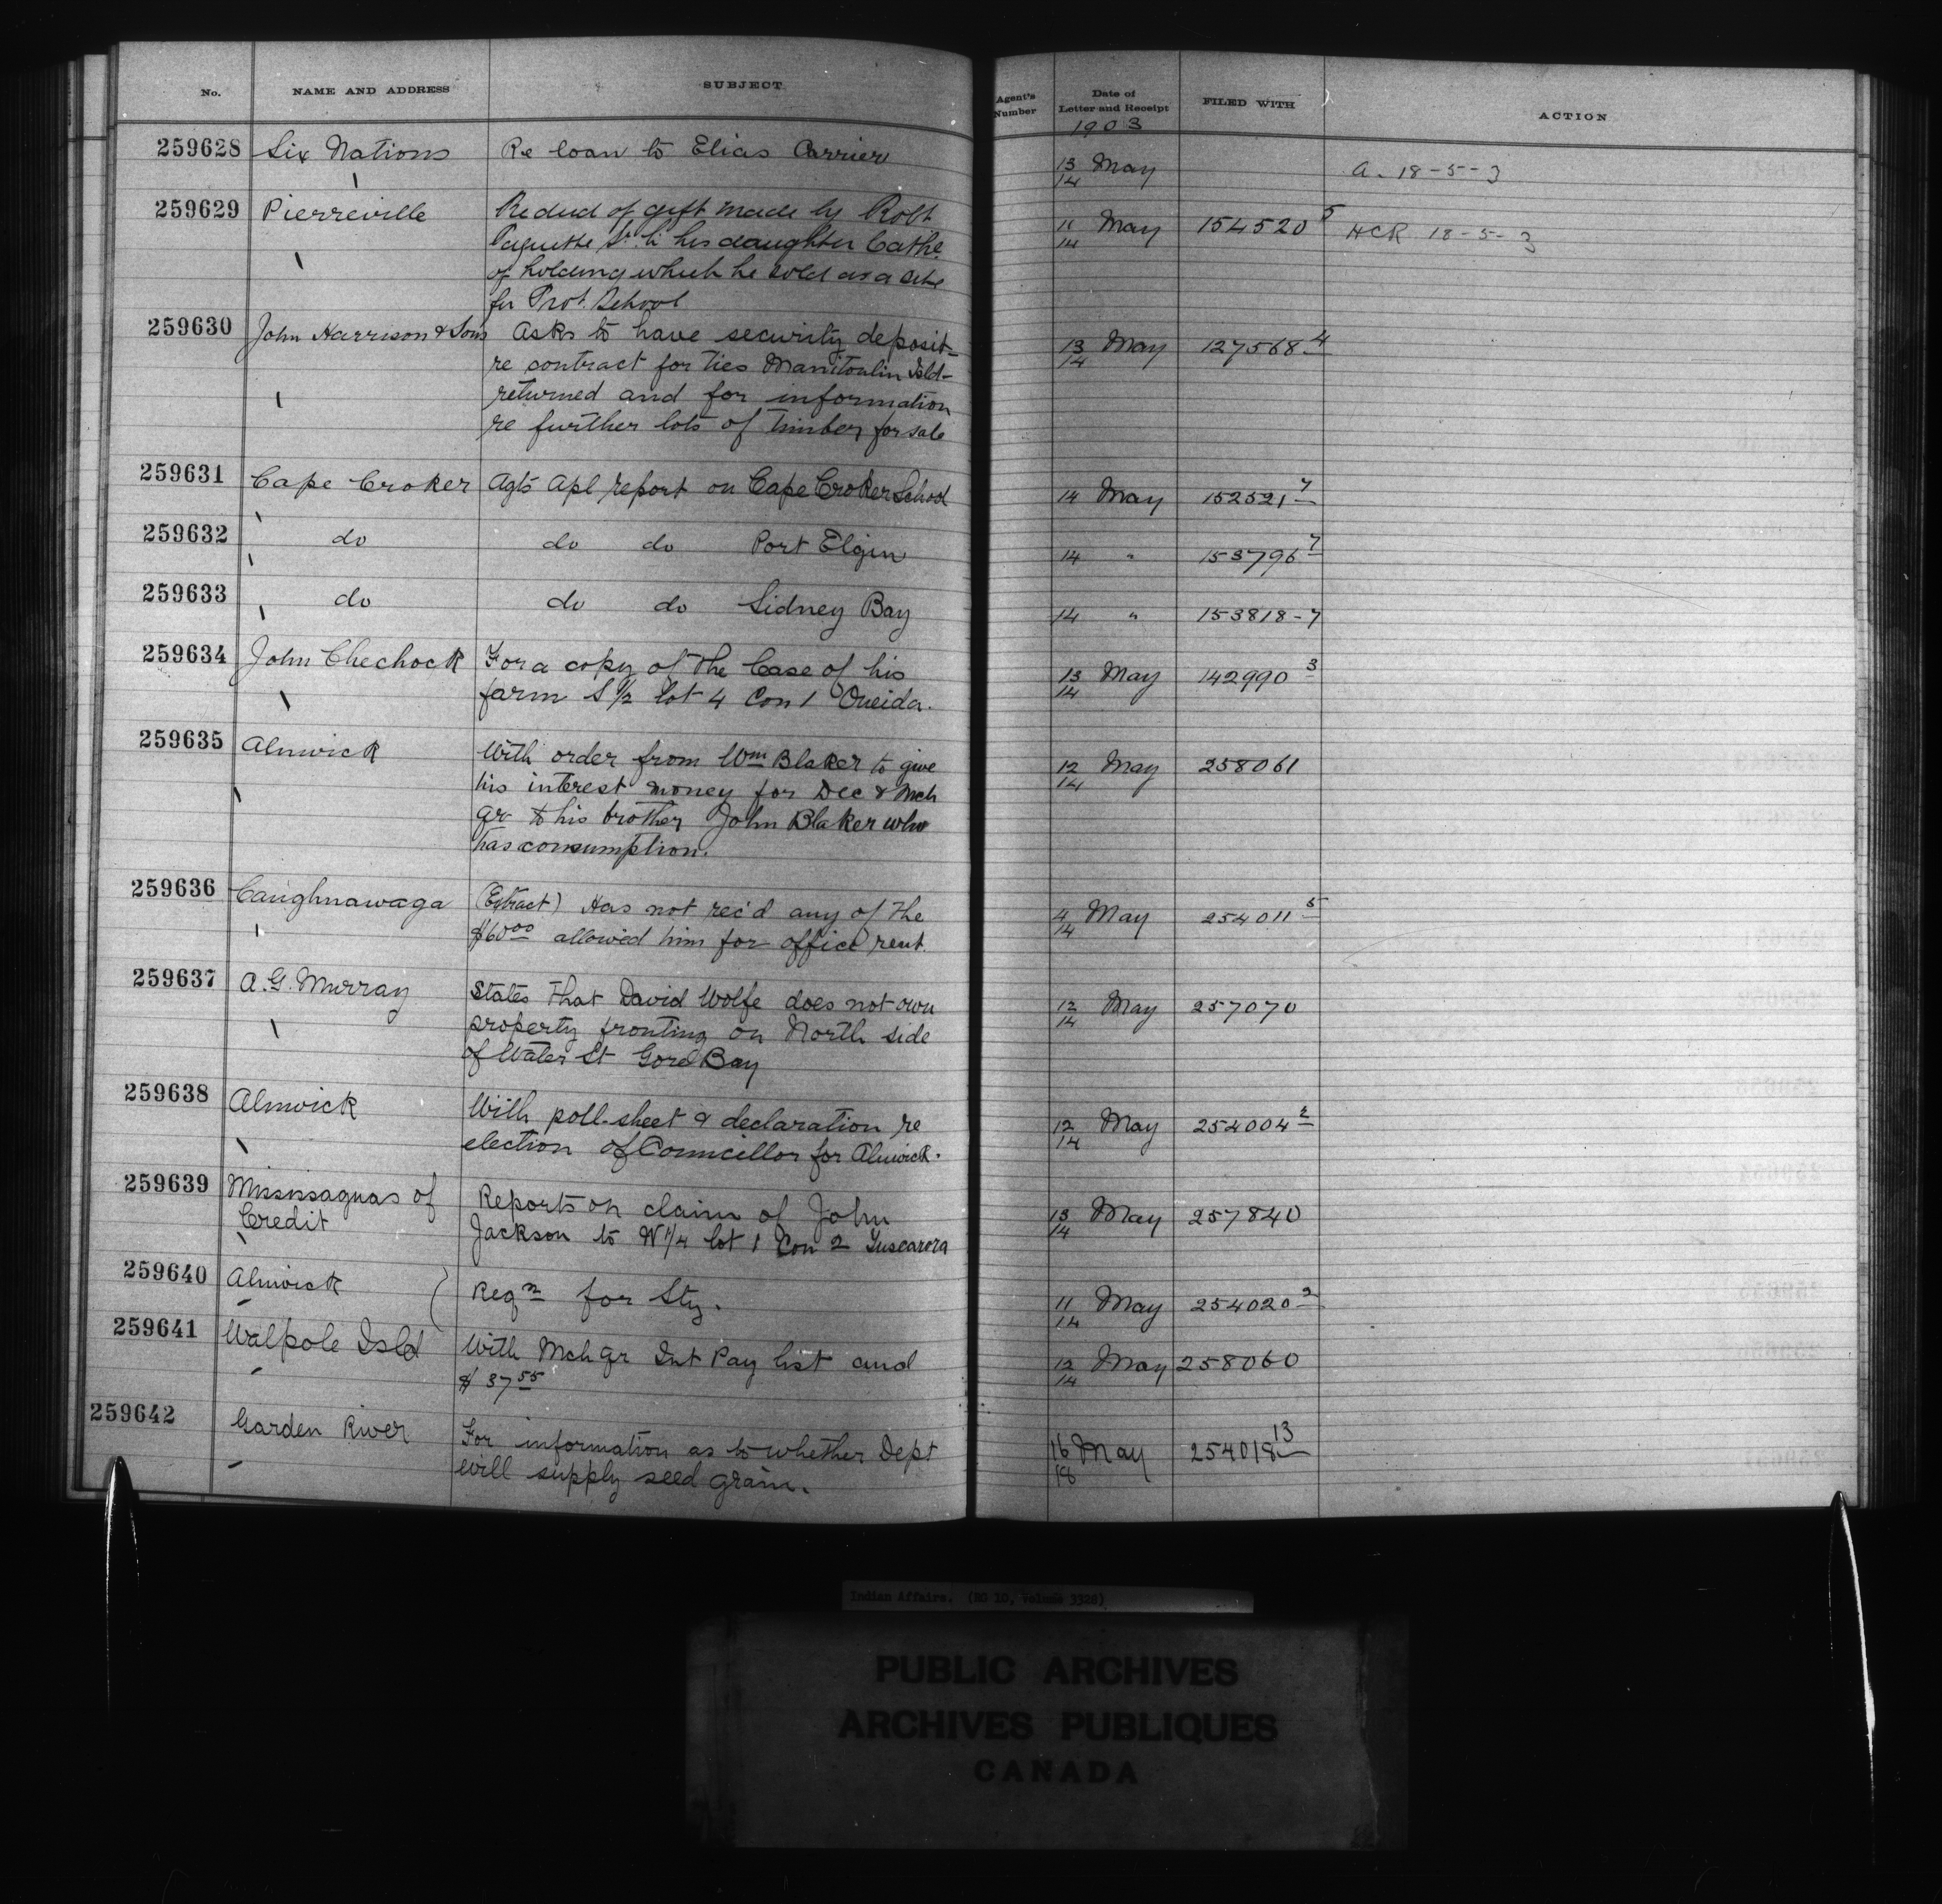 No. NAME AND ADDRESS SUBJECT Agent's Number Date of Letter and Receipt FILED WITH ACTION
1903
259628 Six Nations Re loan to Elias Carrier 13/14 May A. 18-5-3
259629 Pierreville Re deed of gift made by Robt 11/14 May 154520 5 HCR 18-5-3
Paquette Sr. to his daughter Cathe
of holding which he sold as a site
for Prot. School
259630 John Harrison & Sons Asks to have security deposit 13/14 May 127568 4
re contract for ties Manitoulin Isld
returned and for information
re further lots of timber for sale
259631 Cape Croker Agts Apl report on Cape Croker School 14 May 152521 7
259632 do do do Port Elgin 14 " 153796 7
259633 do do do Sidney Bay 14 " 153818-7
259634 John Chechock For a copy of the lease of his 13/14 May 142990 3
farm S 1/2 lot 4 Con 1 Oneida.
259635 Alnwick With order from Wm Blaker to give 12/14 May 258061
his interest money for Dec & Mch
qr to his brother John Blaker who
has consumption.
259636 Caughnawaga (Extract) Has not rec'd any of the 4/14 May 254011 5
$60 00 allowed him for office rent.
259637 A. G. Murray States that David Wolfe does not own 12/14 May 257070
property fronting on North side
of Water St Gore Bay
259638 Alnwick With poll-sheet & declaration re 12/14 May 254004 2
election of Councillor for Alnwick.
259639 Mississaguas of Reports on claim of John 13/14 May 257840
Credit Jackson to W 1/4 lot 1 Con 2 Tuscarora
259640 Alnwick Reqn for Sty. 11/14 May 254020 2
259641 Walpole Isld With Mch qr Int Pay list and 12/14 May 258060
$ 37 55
259642 Garden River For information as to whether Dept 16/18 May 254018 13
will supply seed grain.
Indian Affairs. (RG 10, volume 3328)
PUBLIC ARCHIVES
ARCHIVES PUBLIQUES
CANADA